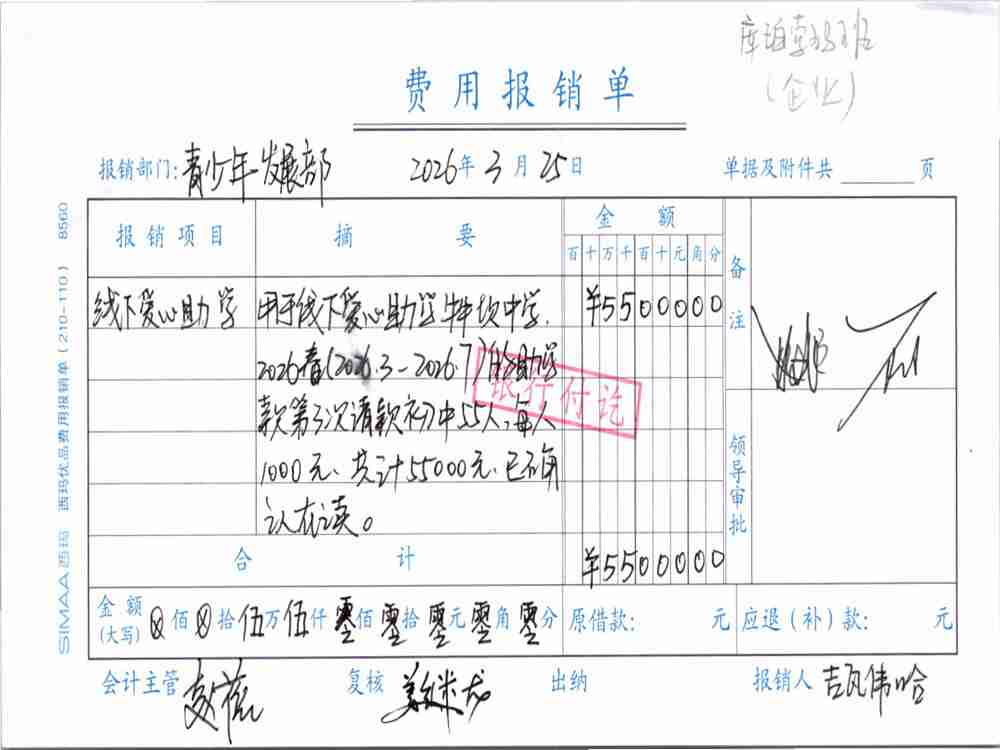 (企业)
费用报销单
报销部门: 青少年发展部 2026年3月25日 单据及附件共 页
报销项目 摘要 金额 备注
百十万千百十元角分
线下爱心助学 用于线下爱心助学牛坎中学, ¥5500000
2026春(2026.3-2026.7)的助学
款第3次请款初中55人,每人
1000元、共计55000元.已确
认在读。
银行付讫
领导审批
合计 ¥5500000
金额(大写) ⊗佰⊗拾伍万伍仟零佰零拾零元零角零分 原借款: 元 应退(补)款: 元
会计主管 复核 姜米龙 出纳 报销人 吉瓦伟哈
SIMAA 西玛 西玛优品费用报销单(210-110) 8560